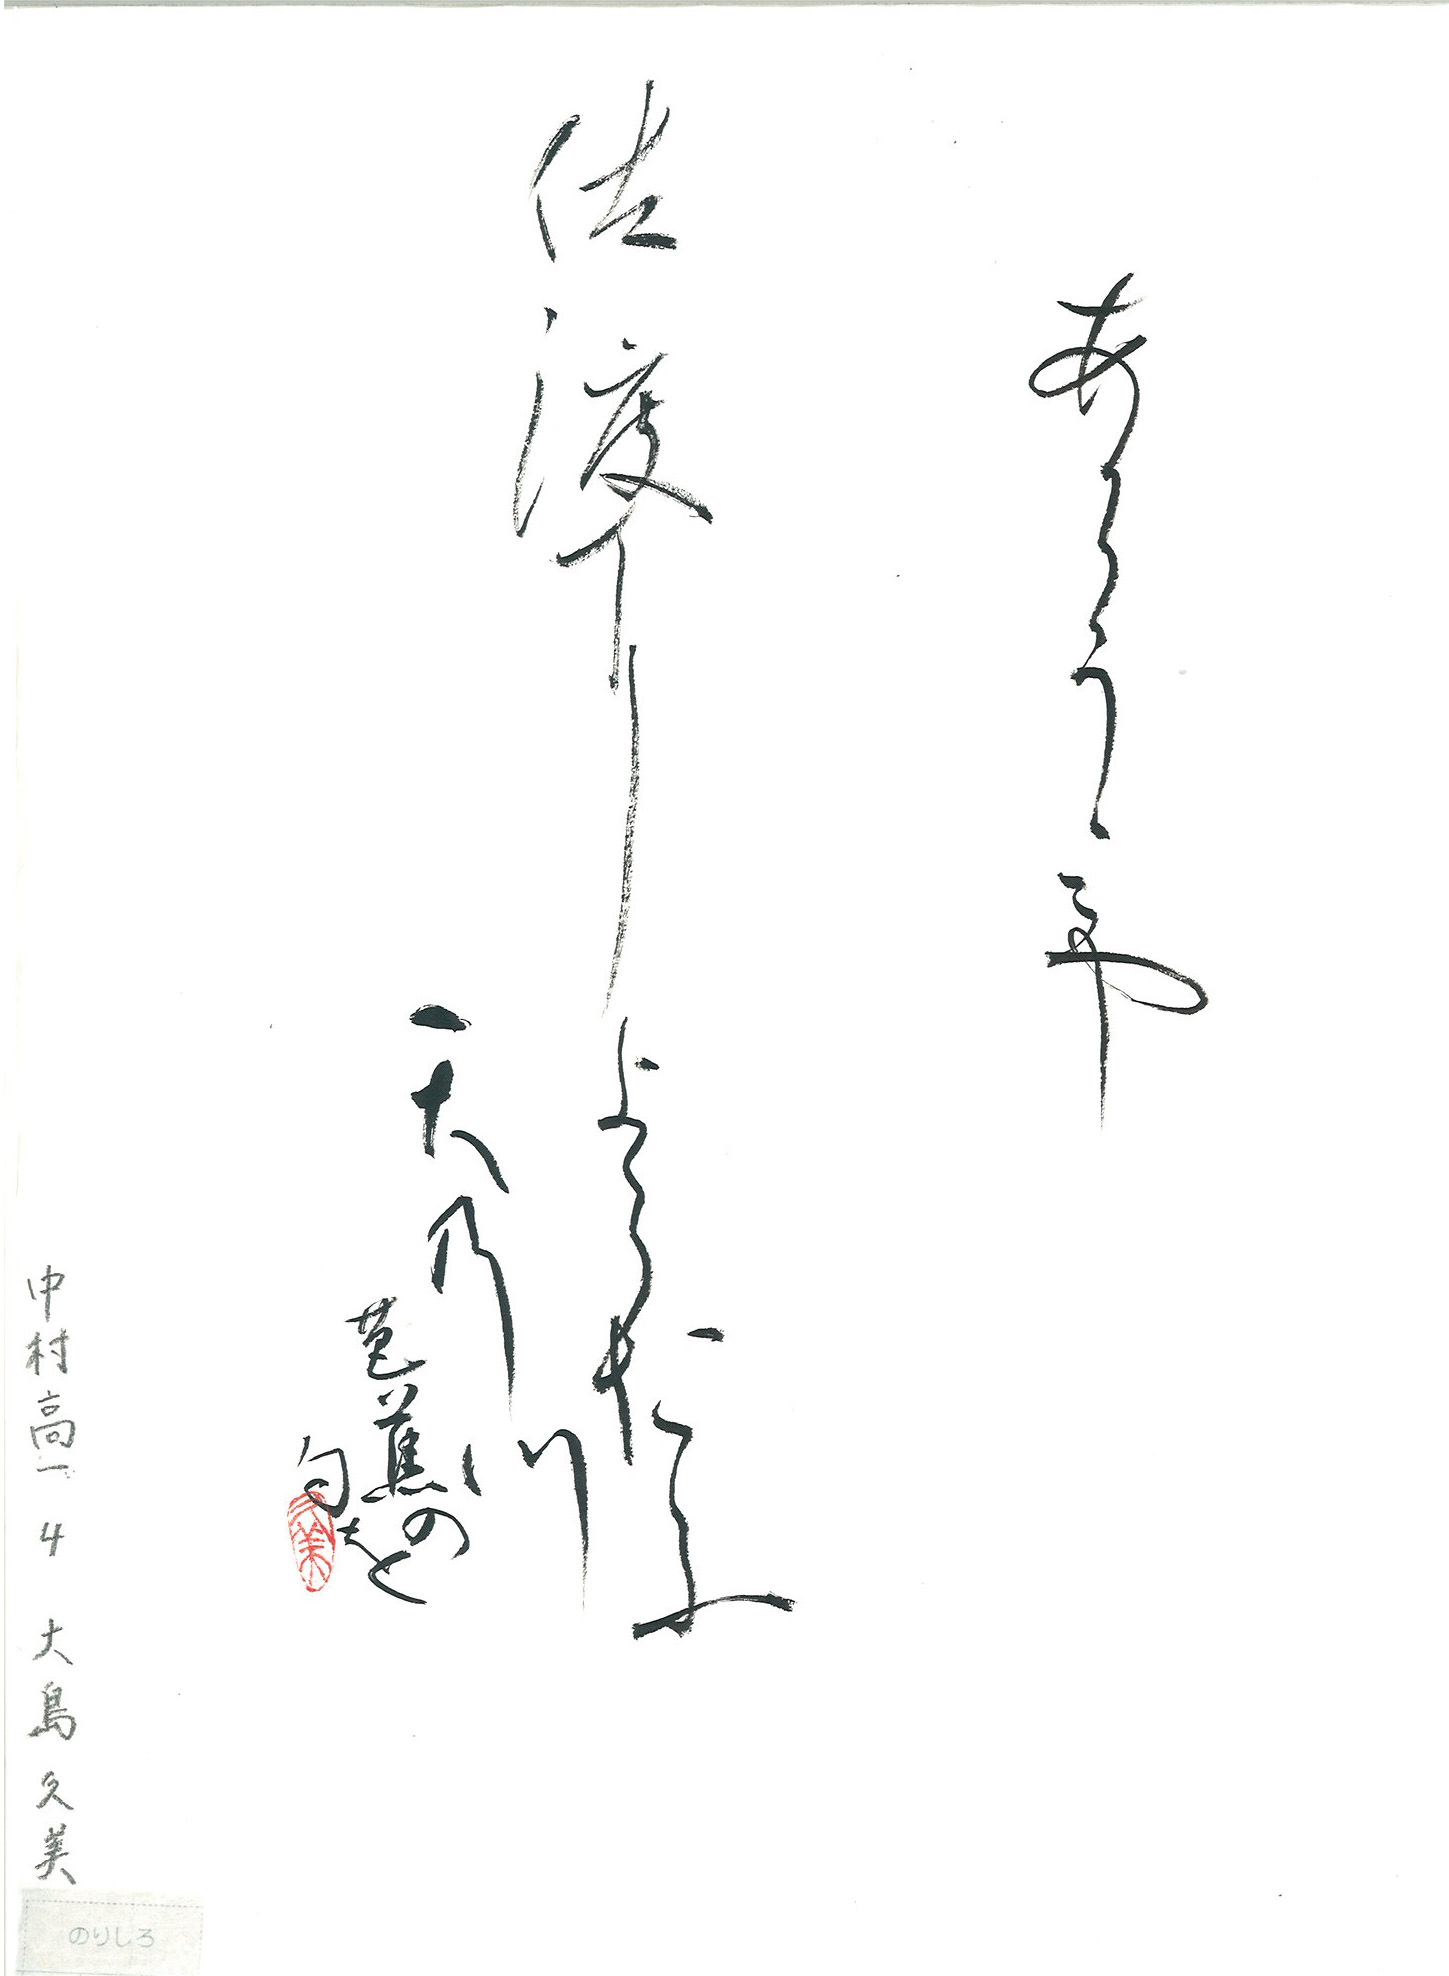 あらうみや
佐渡によこたふ
天乃川
芭蕉の
句を
久美
中村高一 4 大島久美
のりしろ